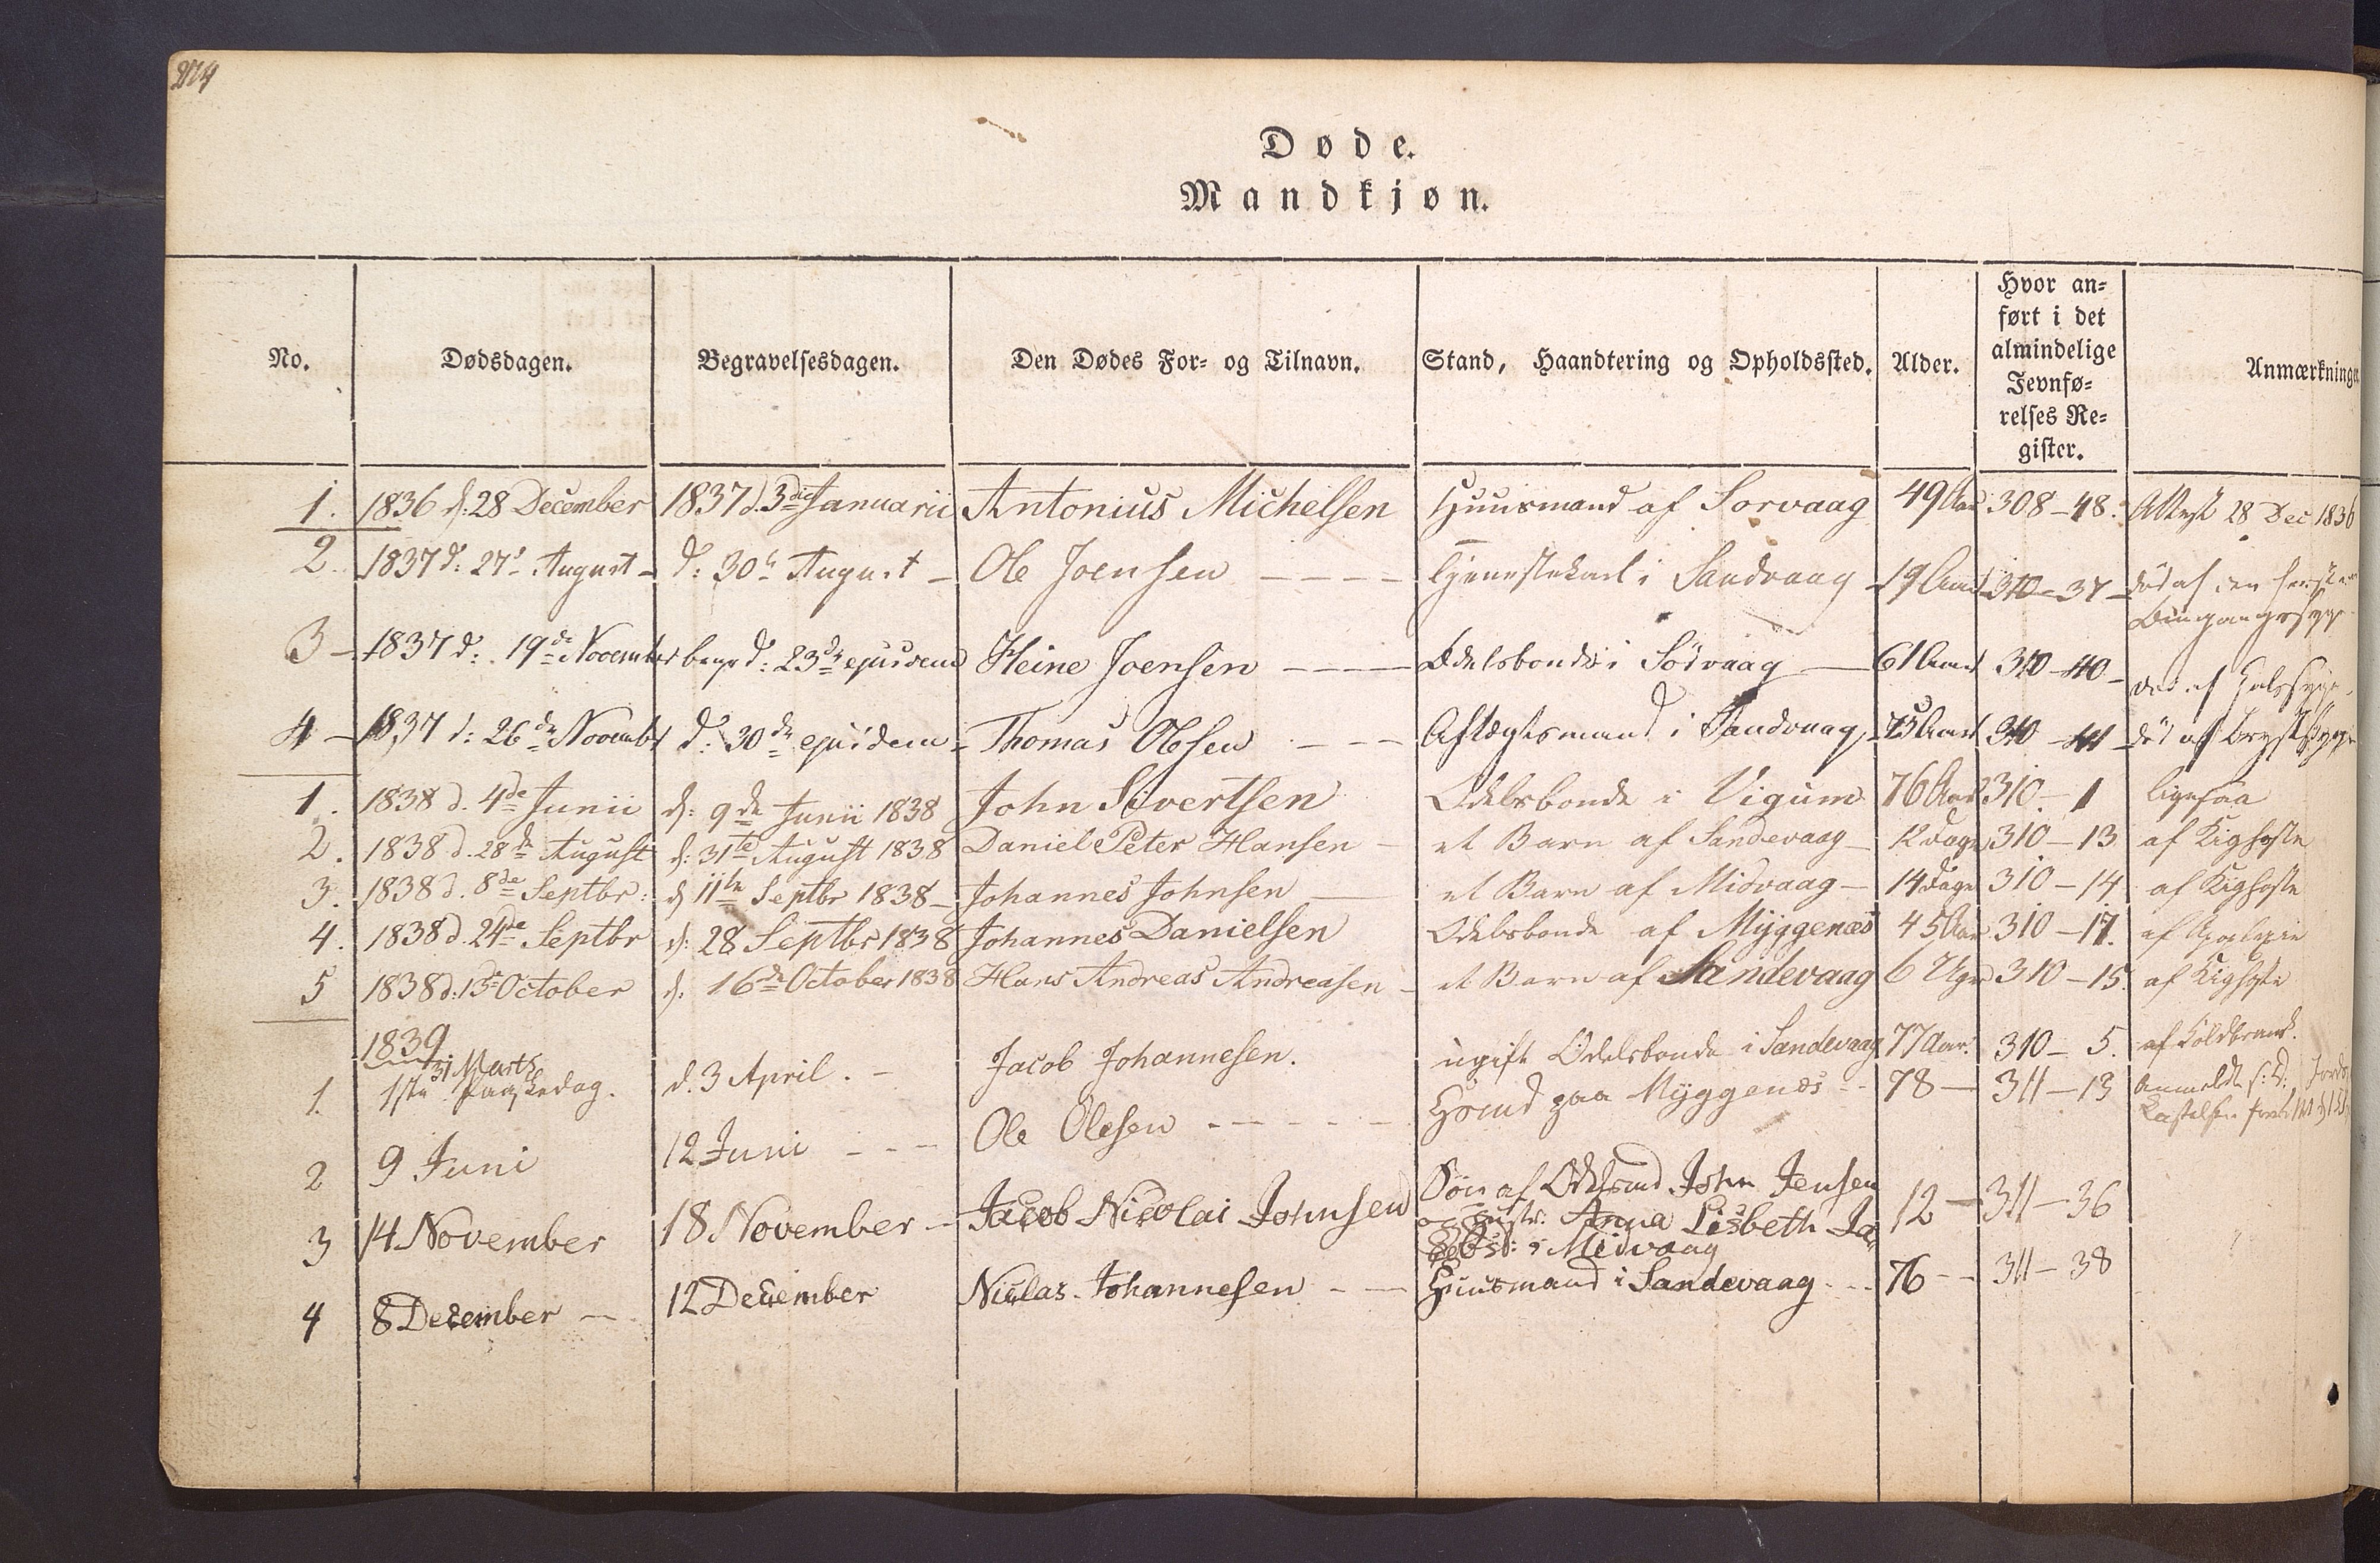 Døde.
Mandkjøn.
No. Dødsdagen. Begravelsesdagen. Den Dødes For- og Tilnavn. Stand, Haandtering og Opholdssted. Alder. Hvor an-
ført i det
almindelige
Jevnfø-
relses Re-
gister. Anmærkninge
1. 1836 d: 28 December 1837 d. 3die Januarii Antonius Michelsen Huusmand af Sorvaag 49 Aar 308-48. Attest 28 Dec 1836
2. 1837 d: 27 August - d: 30 August - Ole Joensen - - - - Tjenestekarl i Sandvaag - 19 Aar 310-37- død af den
3 - 1837 d: 19de November begr d: 23de ejusdem Heine Joensen - - - - Odelsbonde i Sörvaag - 61 Aar 310-40- død af Halssyge
4 - 1837 d: 26de Novembr d: 30de ejusdem - Thomas Olesen - - - Aftægtsmand i Sandvaag, 75 Aar 310 - 41 - död af Brystsyge
1. 1838 d. 4de Junii d: 9de Junii 1838 John Sivertsen Odelsbonde i Vigum 76 Aar 310-1 ligesaa
2. 1838 d. 28de August d: 31te August 1838 Daniel Peter Hansen - et Barn af Sandevaag - 12 Dage 310-13 af Kighoste
3. 1838 d. 8de Septbr: d 11te Septbr 1838 - Johannes Johnsen - et Barn af Midvaag - 14 Dage 310-14 af Kighoste
4. 1838 d. 24de Septbr d: 28 Septbr 1838 Johannes Danielsen Odelsbonde af Myggenæs 45 Aar 310-17. af Apoplexie
5 1838 d: 13de October d: 16de October 1838 Hans Andreas Andreasen - et Barn af Sandevaag 6 Uger 310-15. af Kighoste
1839
31 Marts
1. 1ste Paaskedag. d. 3 April. - Jacob Johannesen. ugift Odelsbonde i Sandevaag 77 Aar. 310-5. af Koldbrand.
2 9 Juni 12 Juni - - - Ole Olesen - - - - - Hsmd paa Myggenæs - - 78 - 311-13 Anmeldt
3 14 November 18 November - Jacob Nicolai Johnsen Søn af Odelsmd John Jensen 12 - 311-36
og Hustr. Anna Lisbeth Ja-
cobsd: i Midvaag
4 8 December - 12 December Niclas Johannesen - - Huusmand i Sandevaag - - 76 - - 311-38